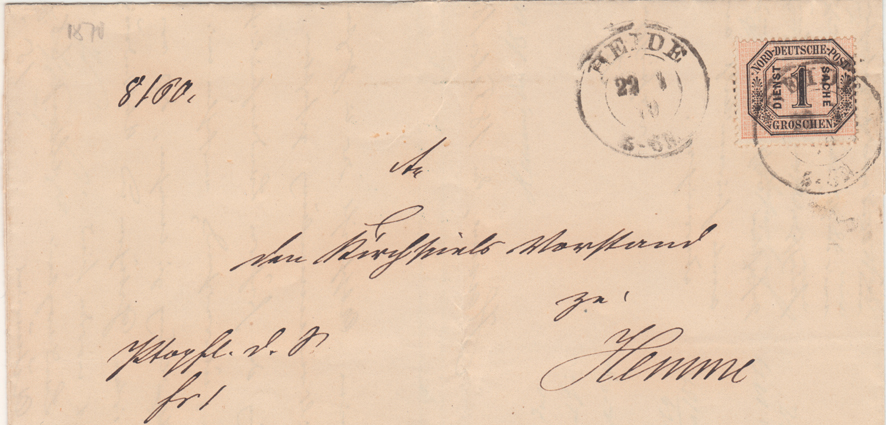 1870
8160.
HEIDE
22 1
70
5-6N.
NORD-DEUTSCHE-POST
DIENST 1 SACHE
GROSCHEN
5-6N
An
den Kirchspiels Vorstand
zu
Hemme
d. S.
fr 1